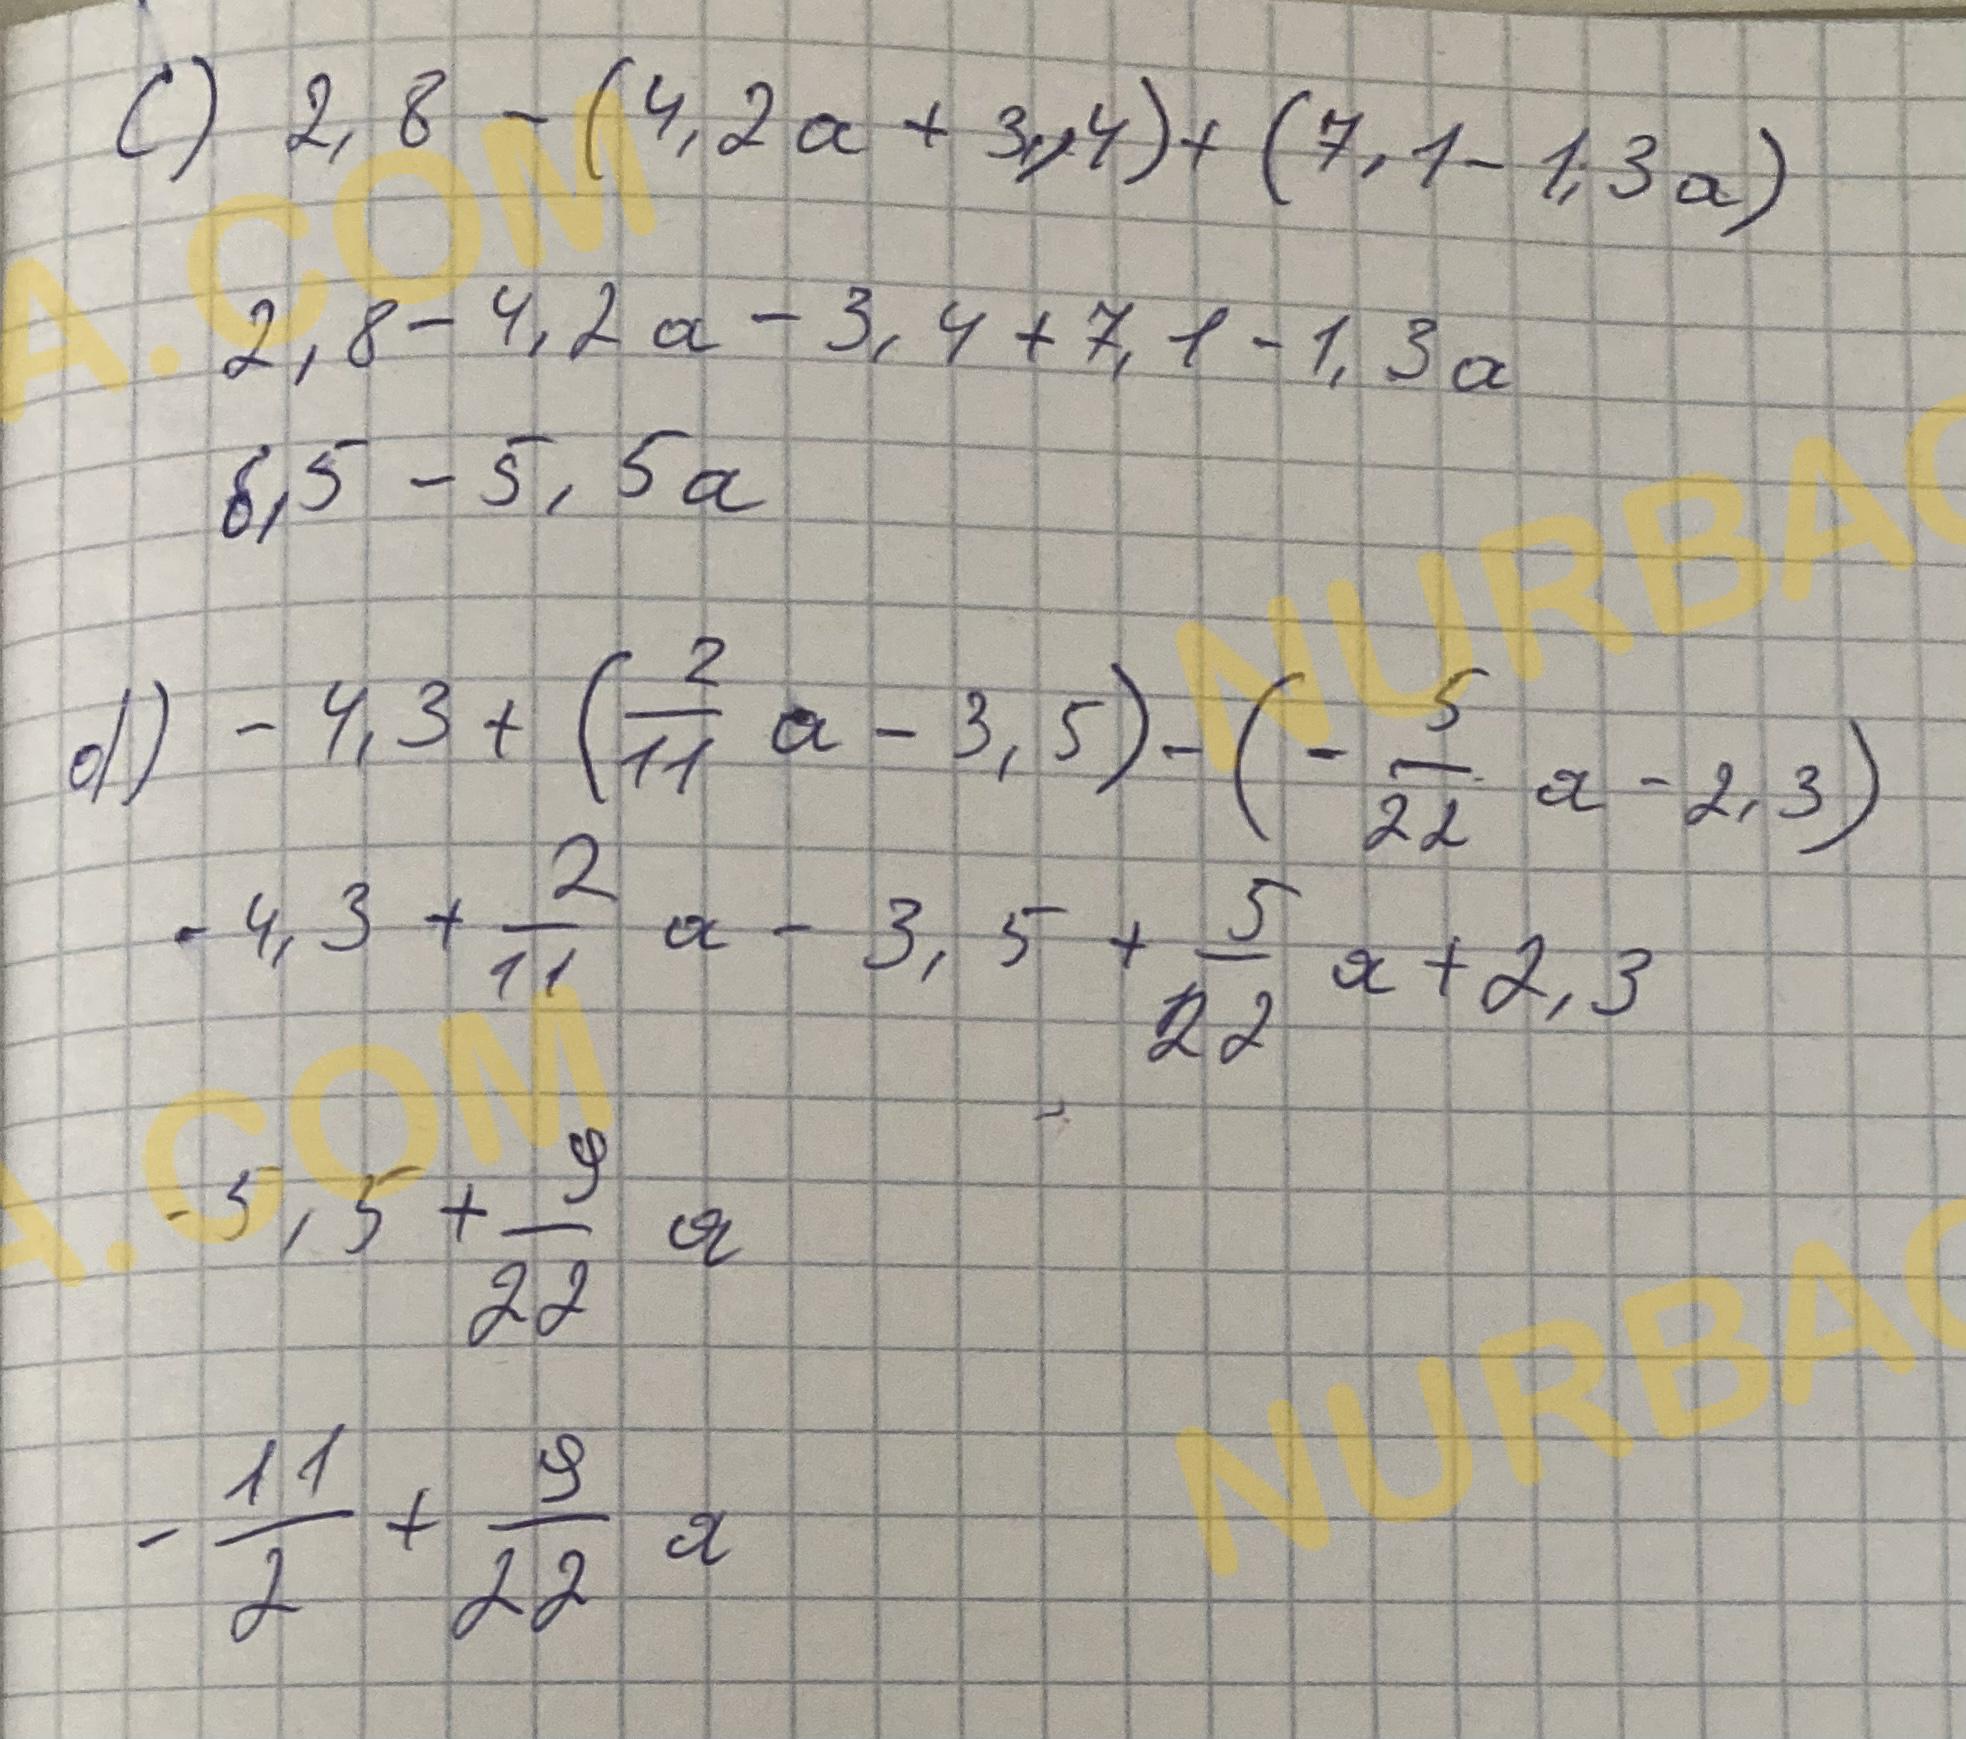 c) 2,8 - (4,2a + 3,4) + (7,1 - 1,3a)
2,8 - 4,2a - 3,4 + 7,1 - 1,3a
6,5 - 5,5a
d) - 4,3 + (2/11 a - 3,5) - (- 5/22 a - 2,3)
- 4,3 + 2/11 a - 3,5 + 5/22 a + 2,3
- 5,5 + 9/22 a
- 11/2 + 9/22 a
A.COM
NURBAC
A.COM
NURBAC